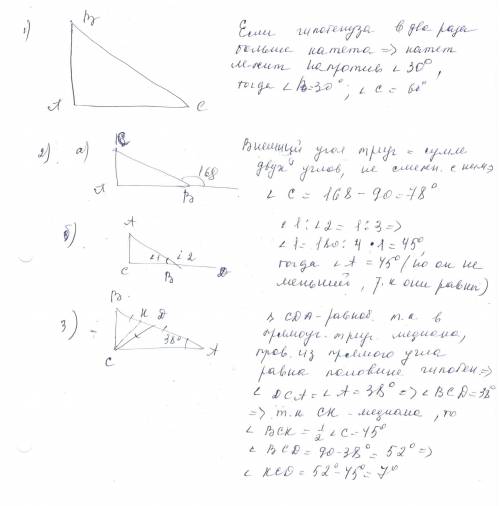 1)
B
A
C
Если гипотенуза в два раза
больше катета => катет
лежит напротив ∠ 30°,
тогда ∠ B=30°; ∠ C = 60°
2). а)
C
A
B
168
Внешний угол треуг = сумме
двух углов, не смежн. с ним =>
∠ C = 168 - 90 = 78°
б).
A
C
B
D
∠1
∠2
∠1 : ∠2 = 1 : 3 =>
∠1 = 180 : 4 • 1 = 45°,
тогда ∠ A = 45° (но он не
меньший, т.к они равны)
3)
B
K
D
38°
C
A
Δ CDA - равноб. т.к. в
прямоуг. треуг. медиана,
пров. из прямого угла
равна половине гипотен. =>
∠ DCA = ∠ A = 38° => ∠ BCD = 38°
=> т.к CK - медиана, то
∠ BCK = 1/2 ∠ C = 45°
∠ BCD = 90 - 38° = 52° =>
∠ KCD = 52° - 45° = 7°